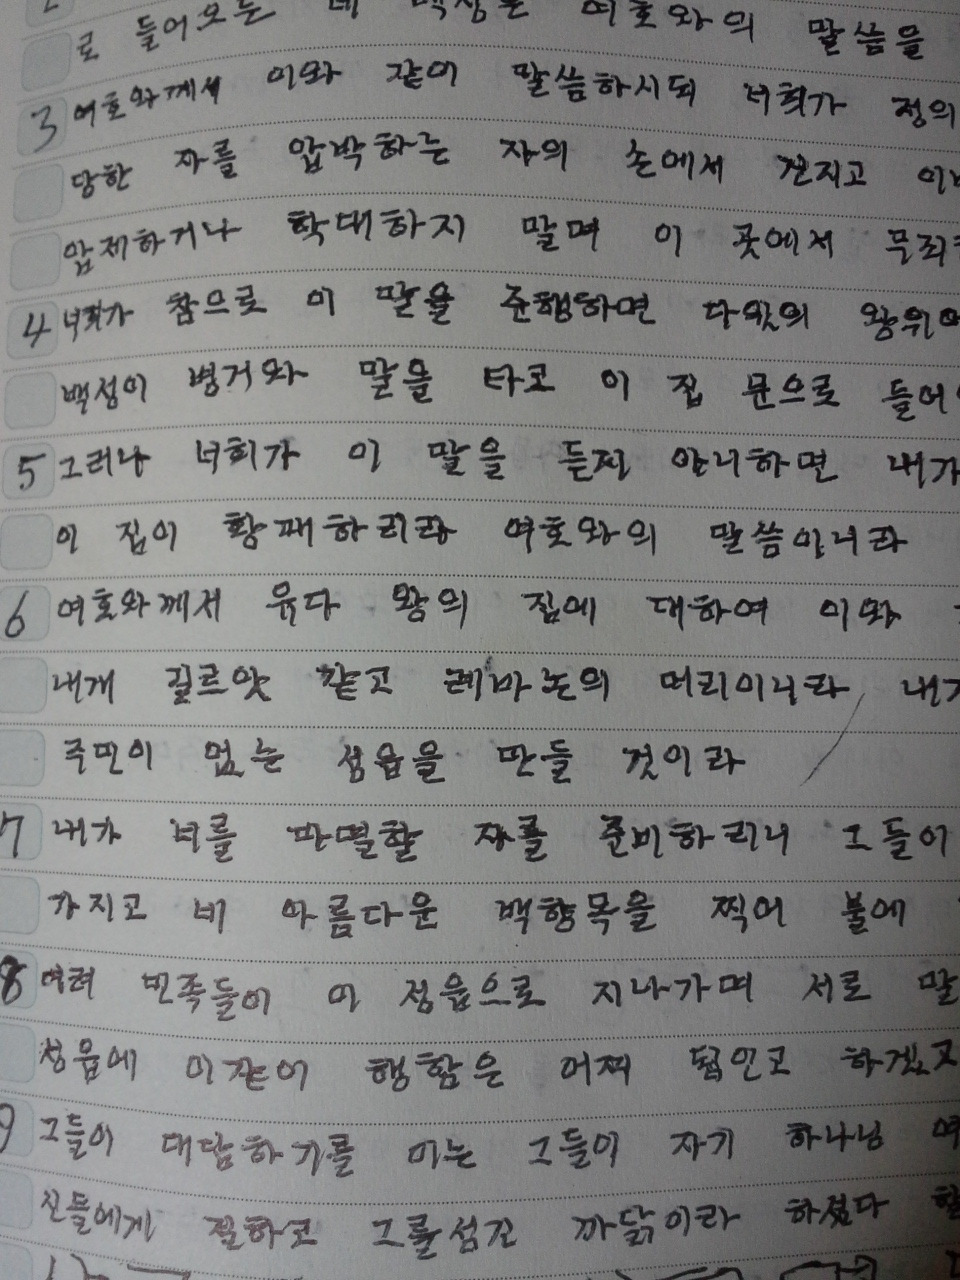 로 들어오는 네 백성은 여호와의 말씀을
3 여호와께서 이와 같이 말씀하시되 너희가 정의
당한 자를 압박하는 자의 손에서 건지고
압제하거나 학대하지 말며 이 곳에서 무죄
4 너희가 참으로 이 말을 준행하면 다윗의 왕위에
백성이 병거와 말을 타고 이 집 문으로 들어
5 그러나 너희가 이 말을 듣지 아니하면 내가
이 집이 황폐하리라 여호와의 말씀이니라
6 여호와께서 유다 왕의 집에 대하여 이와
내게 길르앗 같고 레바논의 머리이니라 내가
주민이 없는 성읍을 만들 것이라
7 내가 너를 파멸할 자를 준비하리니 그들이
가지고 네 아름다운 백향목을 찍어 불에
8 여러 민족들이 이 성읍으로 지나가며 서로 말
성읍에 이같이 행함은 어찌 됨인고 하겠고
9 그들이 대답하기를 이는 그들이 자기 하나님 여
신들에게 절하고 그를 섬긴 까닭이라 하셨다 할